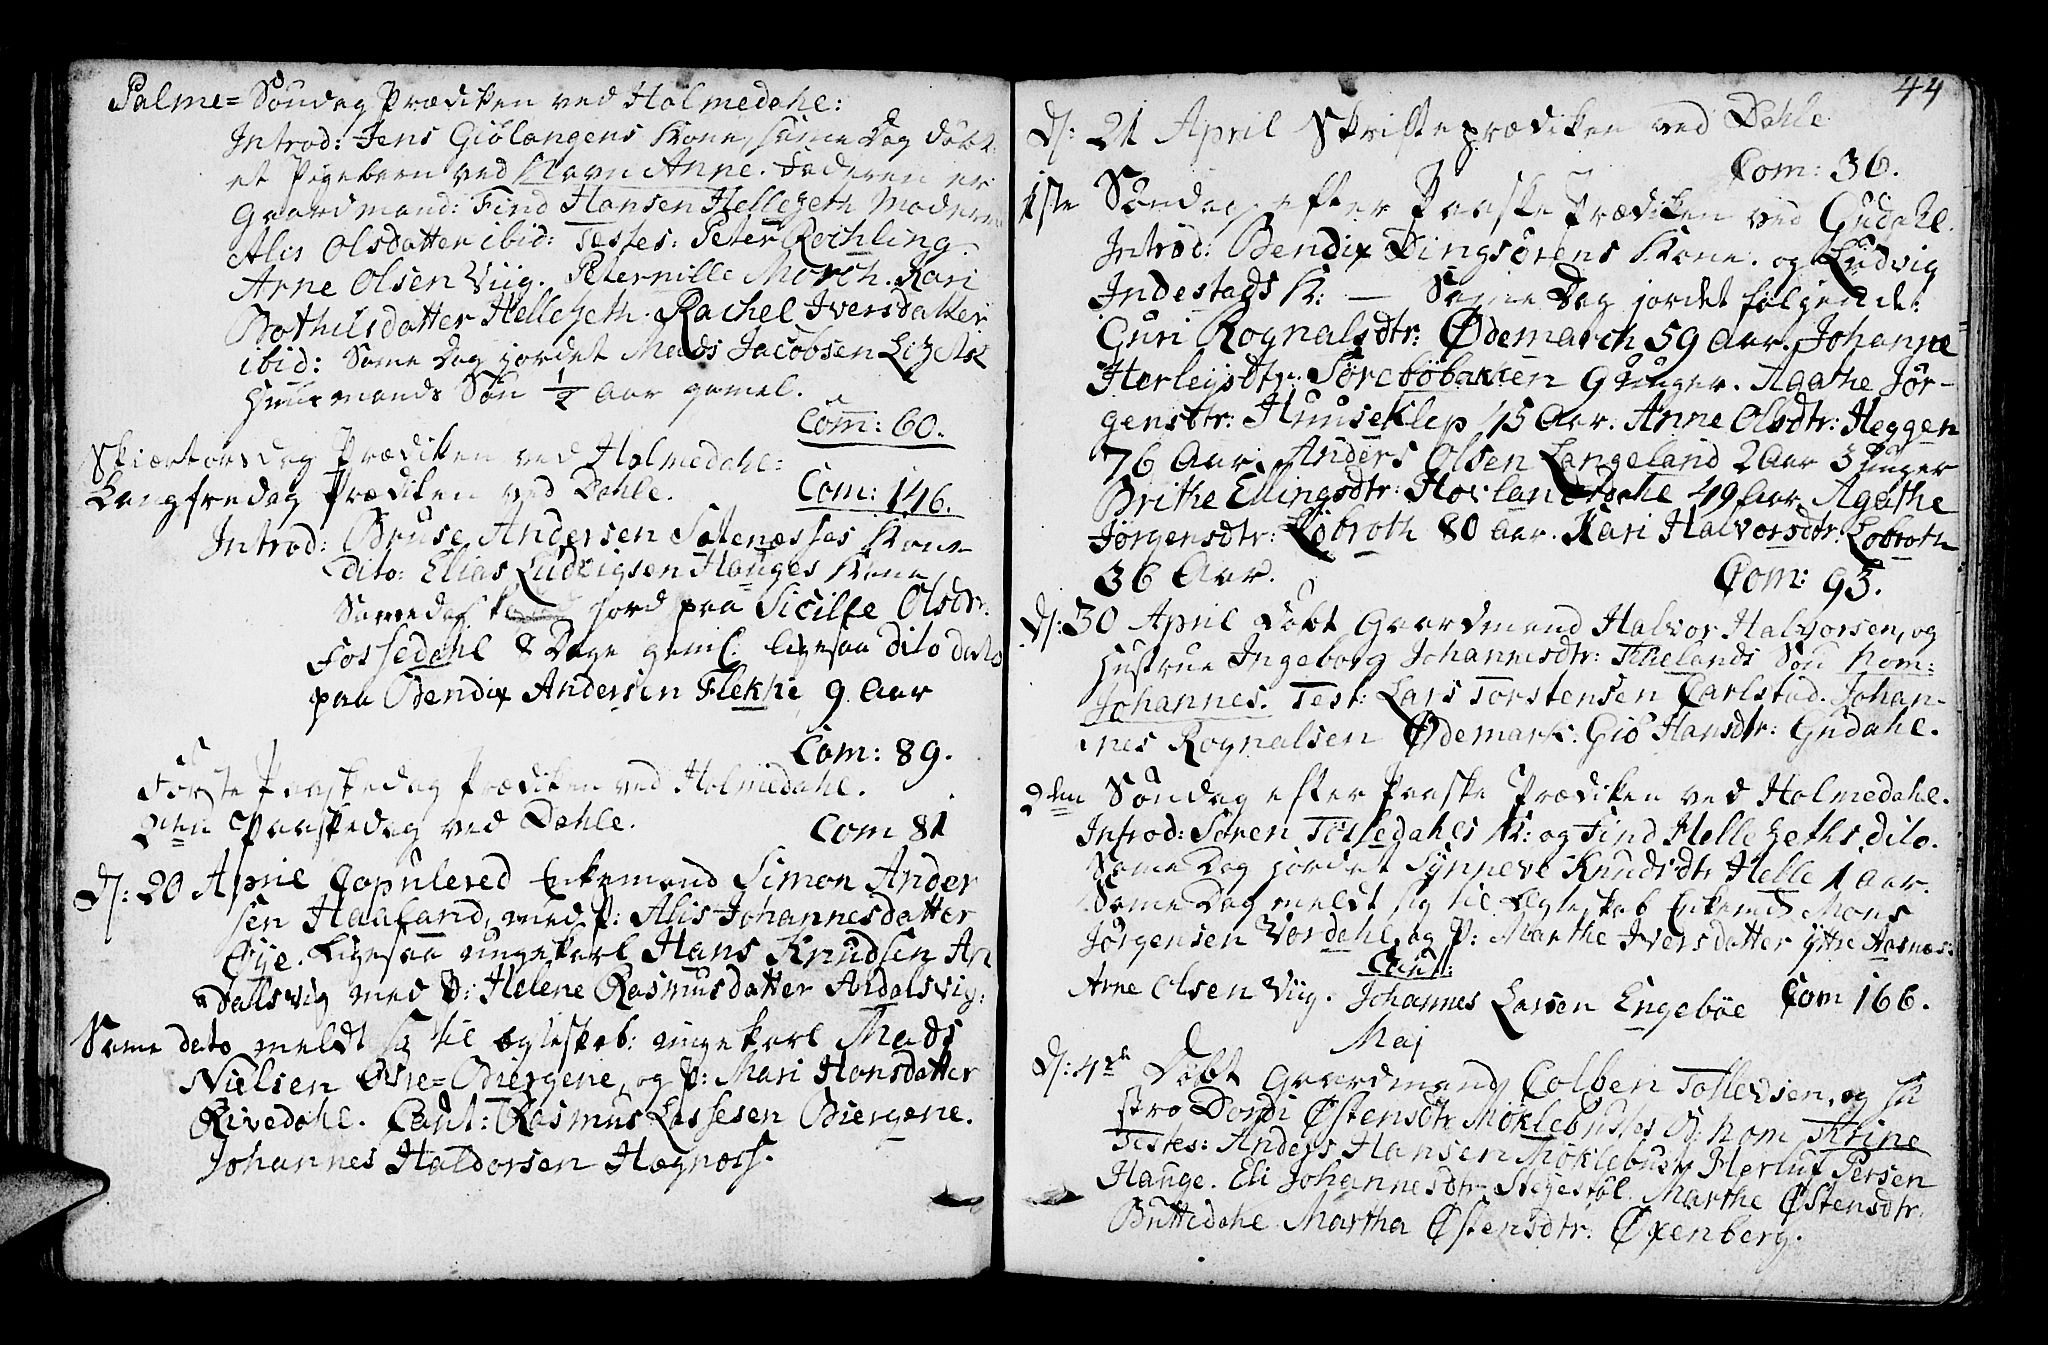 Palme= Søndag Prædiken ved Holmedahl:
Introd: Jens Giölangens Kone, same Dag döbt
et Pigebarn ved Navn Anne. Faderen er
Gaardmand: Find Hansen Hellezeth Moderen
Alis Olsdatter ibid: Testes: Peter Rechling
Arne Olsen Viig. Peternille Morch. Kari
Bothilsdatter Hellezeth. Rachel Iversdatter
ibid: Same Dag jordet Mads Jacobsen
Huusmands Søn 1/2 Aar gamel.
Com: 60.
Skiærtorsdag Prædiken ved Holmedahl:
Langfredag Prædiken ved Dahle. Com: 146.
Introd: Bruse Andersen Sætenæsses Kone
dito: Elias Ludvigsen Hauges Kone
Samedag jord paa Sicille Olsdtr:
Fossedahl 8 Dage geml: ligesaa dito
paa Bendix Andersen Flekke 9 Aar
Com: 89.
Første Paaskedag Prædiken ved Holmedahl.
2den Paaskedag ved Dahle. Com 81
D: 20 April Copulered Enkemand Simon Ander
sen Haaland, med P: Alis Johannesdatter
Øye. Ligesaa ungekarl Hans Knudsen An
dalsvig med P: Helene Rasmusdatter Andalsvig:
Same dato meldt sig til Ægteskab: ungekarl Mads
Nielsen Øvre=Biergene, og P: Mari Hansdatter
Rivedahl. Caut: Rasmus Lassesen Biergene.
Johannes Haldorsen Hægnæss.
44
D: 21 April Skrifteprædiken ved Dahle
Com: 36.
1ste Søndag efter Paaske Prædiken ved Gudahl.
Introd: Bendix Dingsörens Kone. og Ludvig
Indestads K: — Same Dag jordet følgende:
Guri Rognalsdtr: Ødemarch 59 Aar. Johanne
Herleijsdtr: Söreböbakken 9 Uuger. Agathe Jör-
gensdtr: Huuseklep 45 Aar. Anne Olsdtr: Heggen
76 Aar. Anders Olsen Langeland 2 Aar 3 Uuger
Brithe Ellingsdtr: Hovlandsdahl 49 Aar. Agathe
Jørgensdtr: Löbroth 80 Aar. Kari Halvorsdtr: Løbroth
36 Aar. Com: 93.
D: 30 April Döbt Gaardmand Halvor Halvorsen, og
Hustrue Ingeborg Johannesdtr: Søn nom:
Johannes. Test: Lars Torstensen Carlstad. Johan-
nes Rognalsen Ødemark. Giö Hansdtr: Gudahl.
2den Søndag efter Paaske Prædiken ved Holmedahl.
Introd: Sören Fossedahls K: og Find Hellezeths dito.
Same Dag jordet Synneve Knudsdtr Helle 1 Aar.
Same Dag meldt sig til Ægteskab Enkemd Mons
Jørgensen Vordahl, og P: Marthe Iversdatter yttre Aasnæs:
Caut:
Arne Olsen Viig. Johannes Larsen Engebøe Com 166.
Maj
D: 4de Döbt Gaardmand Colben Tollevsen, og Hu
stro Dordi Østensdtr Möklebustes B: nom Thrine
Testes: Anders Hansen Möklebust Herluf Persen
Hauge. Eli Johannesdtr Stegestöl. Marthe Østensdtr
Buttedahl Martha Østensdtr: Oxenberg.